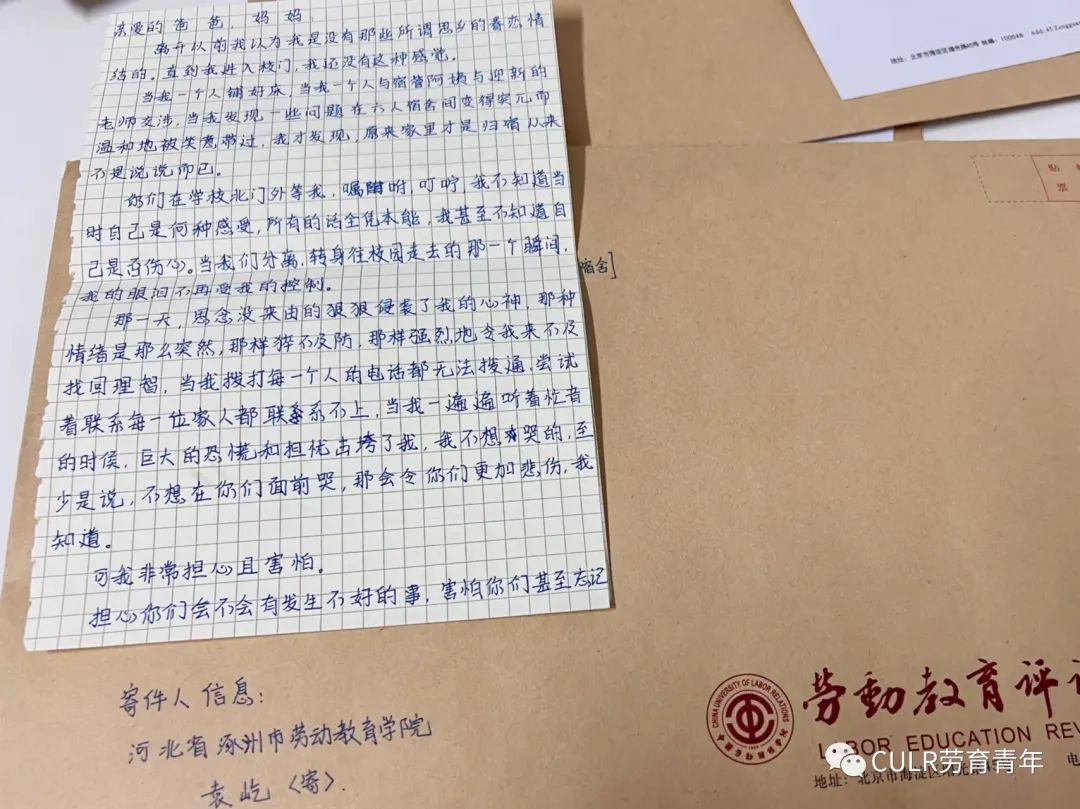 亲爱的爸爸、妈妈:
离开以前我以为我是没有那些所谓思乡的眷恋情
结的。直到我进入校门,我还没有这种感觉。
当我一个人铺好床,当我一个人与宿管阿姨与迎新的
老师交涉,当我发现一些问题在六人宿舍间变得突兀而
温和地被笑意带过,我才发现,原来家里才是归宿从来
不是说说而已。
你们在学校北门外等我,嘱咐,叮咛,我不知道当
时自己是何种感受,所有的话全凭本能,我甚至不知道自
己是否伤心。当我们分离,转身往校园走去的那一个瞬间,
我的眼泪不再受我的控制。
那一天,思念没来由的狠狠侵袭了我的心神,那种
情绪是那么突然,那样猝不及防,那样强烈地令我来不及
找回理智,当我拨打每一个人的电话都无法拨通,尝试
着联系每一位家人都联系不上,当我一遍遍听着忙音
的时候,巨大的恐慌和担忧击垮了我,我不想哭的,至
少是说,不想在你们面前哭,那会令你们更加悲伤,我
知道。
可我非常担心且害怕。
担心你们会不会有发生不好的事,害怕你们甚至忘记
宿舍]
寄件人信息:
河北省涿州市劳动教育学院
袁屹〈寄〉.
地址:北京市海淀区增光路45号 邮编:100048 Add:45 Zengguang
贴
票
CHINA UNIVERSITY OF LABOR RELATIONS
劳動教育评
LABOR EDUCATION REV
地址:北京市海淀区增光路
电
CULR劳育青年